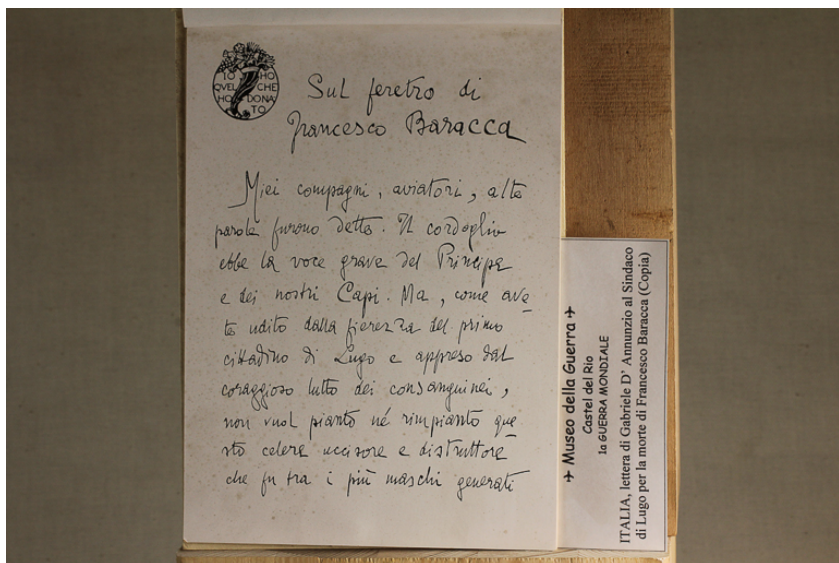 IO HO
QVEL CHE
HO DONA
TO
Sul feretro di
Francesco Baracca
Miei compagni, aviatori, alte
parole furono dette. Il cordoglio
ebbe la voce grave del Principe
e dei nostri Capi. Ma, come ave
te udito dalla fierezza del primo
cittadino di Lugo e appreso dal
coraggioso lutto dei consanguinei,
non vuol pianto né rimpianto que
sto celere uccisore e distruttore
che fu tra i più maschi generati
✈ Museo della Guerra ✈
Castel del Rio
1a GUERRA MONDIALE
ITALIA, lettera di Gabriele D' Annunzio al Sindaco
di Lugo per la morte di Francesco Baracca (Copia)